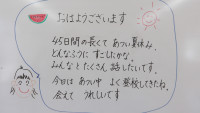 おはようございます
45日間の長くて あつい夏休み。
どんなふうに すごしたかな。
みんなと たくさん 話したいです。
今日は あつい中 よく登校してきたね。
会えて うれしいです